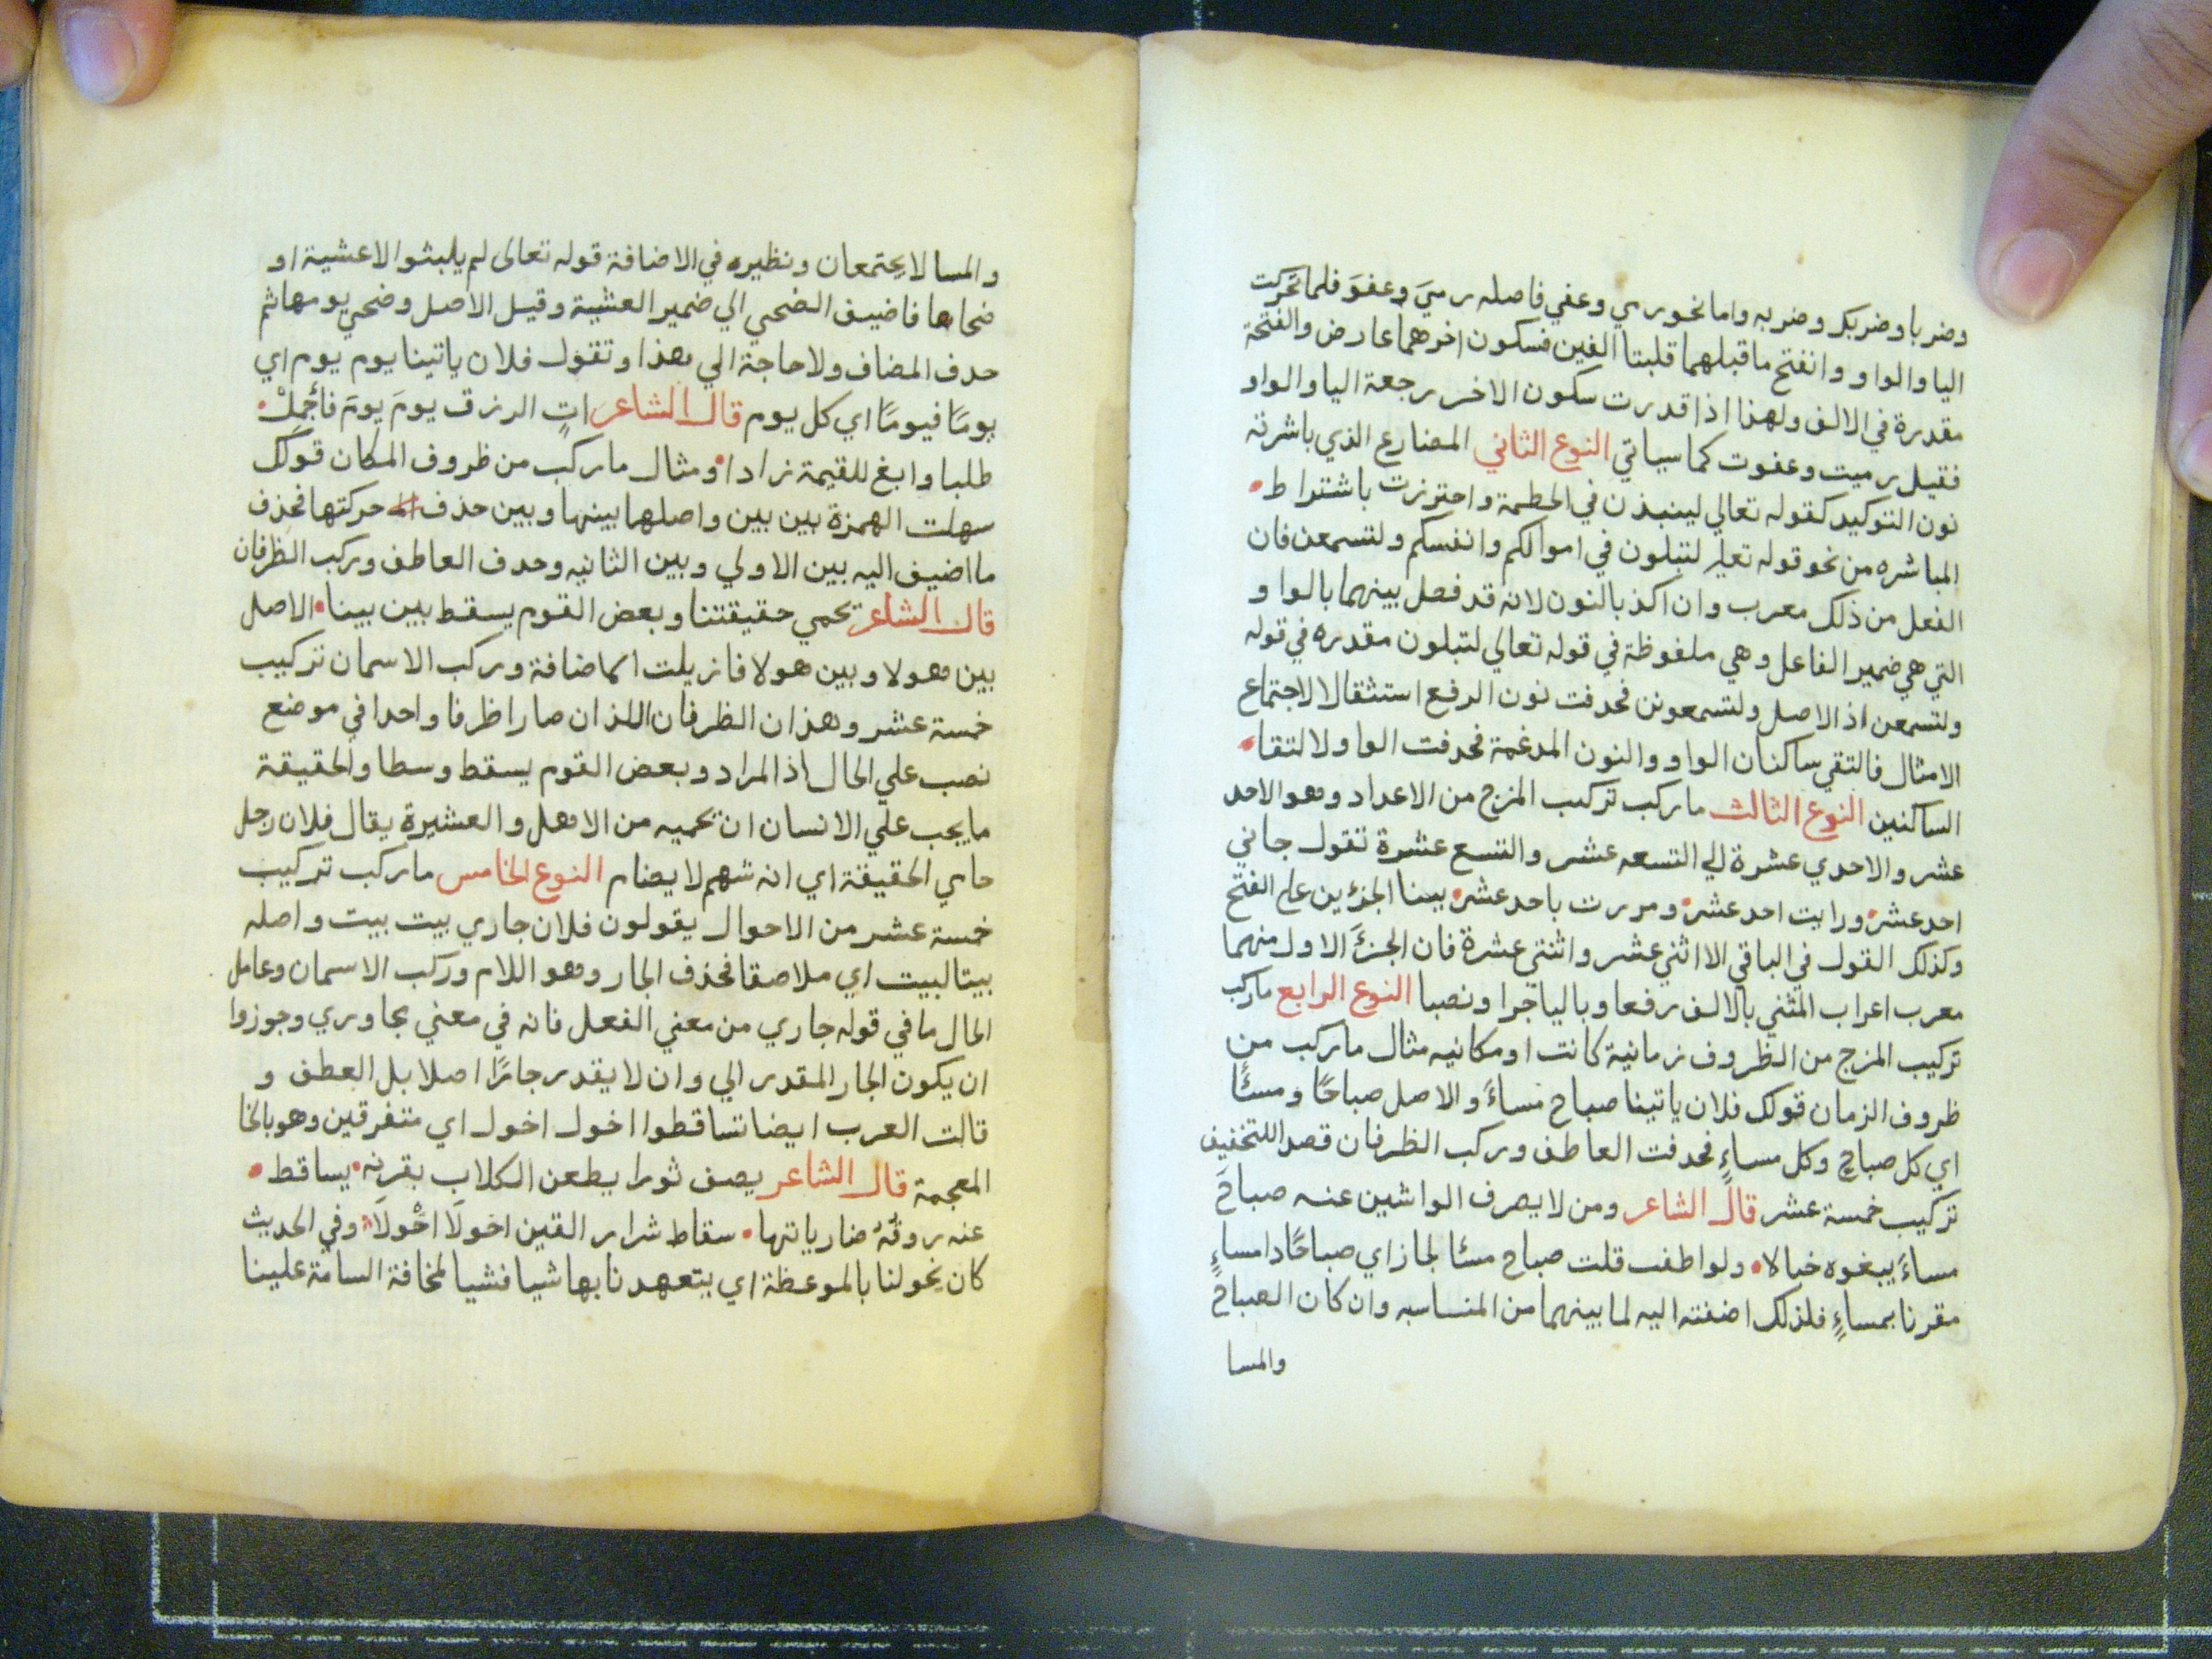 وضربا وضربك وضربه واما نحو رمي وعفي فاصله رميَ وعفوَ فلما تحركت
اليا والواو وانفتح ما قبلهما قلبتا الفين فسكون اخرهما عارض والفتحة
مقدرة في الالف ولهذا اذا قدرت سكون الاخر رجعة اليا والواو
فقيل رميت وعفوت كما سياتي النوع الثاني المضارع الذي باشرته
نون التوكيد كقوله تعالي لينبذن في الحطمة واحترزت باشتراط
المباشره من نحو قوله تعالي لتبلون في اموالكم وانفسكم ولتسمعن فان
الفعل من ذلك معرب وان اكد بالنون لانه قد فصل بينهما بالواو
التي هي ضمير الفاعل وهي ملفوظة في قوله تعالي لتبلون مقدره في قوله
ولتسمعن اذ الاصل ولتسمعونن فحدفت نون الرفع استثقالا لاجتماع
الامثال فالتقي ساكنان الواو والنون المدغمة فحدفت الواو لالتقا
الساكنين النوع الثالث ماركب تركيب المزج من الاعداد وهو الاحد
عشر والاحدي عشرة الي التسعه عشر والتسع عشرة تقول جاني
احد عشر ورايت احد عشر ومررت باحد عشر ببنا الجزئين علي الفتح
وكذلك القول في الباقي الا اثني عشر واثنتي عشرة فان الجزءَ الاول منهما
معرب اعراب المثني بالالف رفعا وباليا جرا ونصبا النوع الرابع ماركب
تركيب المزج من الظروف زمانية كانت او مكانيه مثال ماركب من
ظروف الزمان قولك فلان ياتينا صباح مساءً والاصل صباحًا ومسئًا
اي كل صباحٍ وكل مساءٍ فحدفت العاطف وركب الظرفان قصدا للتخفيف
تركيب خمسة عشر قال الشاعر ومن لا يصرف الواشين عنه صباحَ
مساءً يبغوه خبالا ولو اضفت قلت صباح مسئا لجاز اي صباحًا ذا مساءٍ
مقرنا بمساءٍ فلذلك اضفته اليه لما بينهما من المناسبه وان كان الصباحَ
والمسا
والمسا لا يجتمعان ونظيره في الاضافة قوله تعالى لم يلبثوا الا عشية او
ضحاها فاضيف الضحي الي ضمير العشية وقيل الاصل وضحي يومها ثم
حدف المضاف ولا حاجة الي هذا وتقول فلان ياتينا يوم يوم اي
يومًا فيومًا اي كل يوم قال الشاعر اتٍ الرزق يومَ يومَ فأجْمِلْ
طلبا وابغ للقيمة زادا ومثال ماركب من ظروف المكان قولك
سهلت الهمزة بين بين واصلها بينها وبين حذف حركتها فحذف
ما اضيف اليه بين الاولي وبين الثانيه وحدف العاطف وركب الظرفان
قال الشاعر نحمي حقيقتنا وبعض القوم يسقط بين بينا الاصل
بين هولا وبين هولا فازيلت الاضافة وركب الاسمان تركيب
خمسة عشر وهذان الظرفان اللذان صارا ظرفا واحدا في موضع
نصب علي الحال اذ المراد وبعض القوم يسقط وسطا والحقيقة
ما يجب علي الانسان ان يحميه من الاهل والعشيرة يقال فلان رجل
حامي الحقيقة اي انه شهم لا يضام النوع الخامس ماركب تركيب
خمسة عشر من الاحوال يقولون فلان جاري بيت بيت واصله
بيتا لبيت اي ملاصقا فحذف الجار وهو اللام وركب الاسمان وعامل
الحال ما في قوله جاري من معني الفعل فانه في معني مجاوري وجوزوا
ان يكون الجار المقدر الي وان لا يقدر جارًا اصلا بل العطف و
قالت العرب ايضا تساقطوا اخول اخول اي متفرقين وهو بالخا
المعجمة قال الشاعر يصف ثورا يطعن الكلاب بقرنه يساقط
عنه روقُهُ ضارياتها سقاط شرار القين اخولَا اخْولَا وفي الحديث
كان يخولنا بالموعظة اي يتعهدنا بها شيا فشيا لمخافة السامة علينا